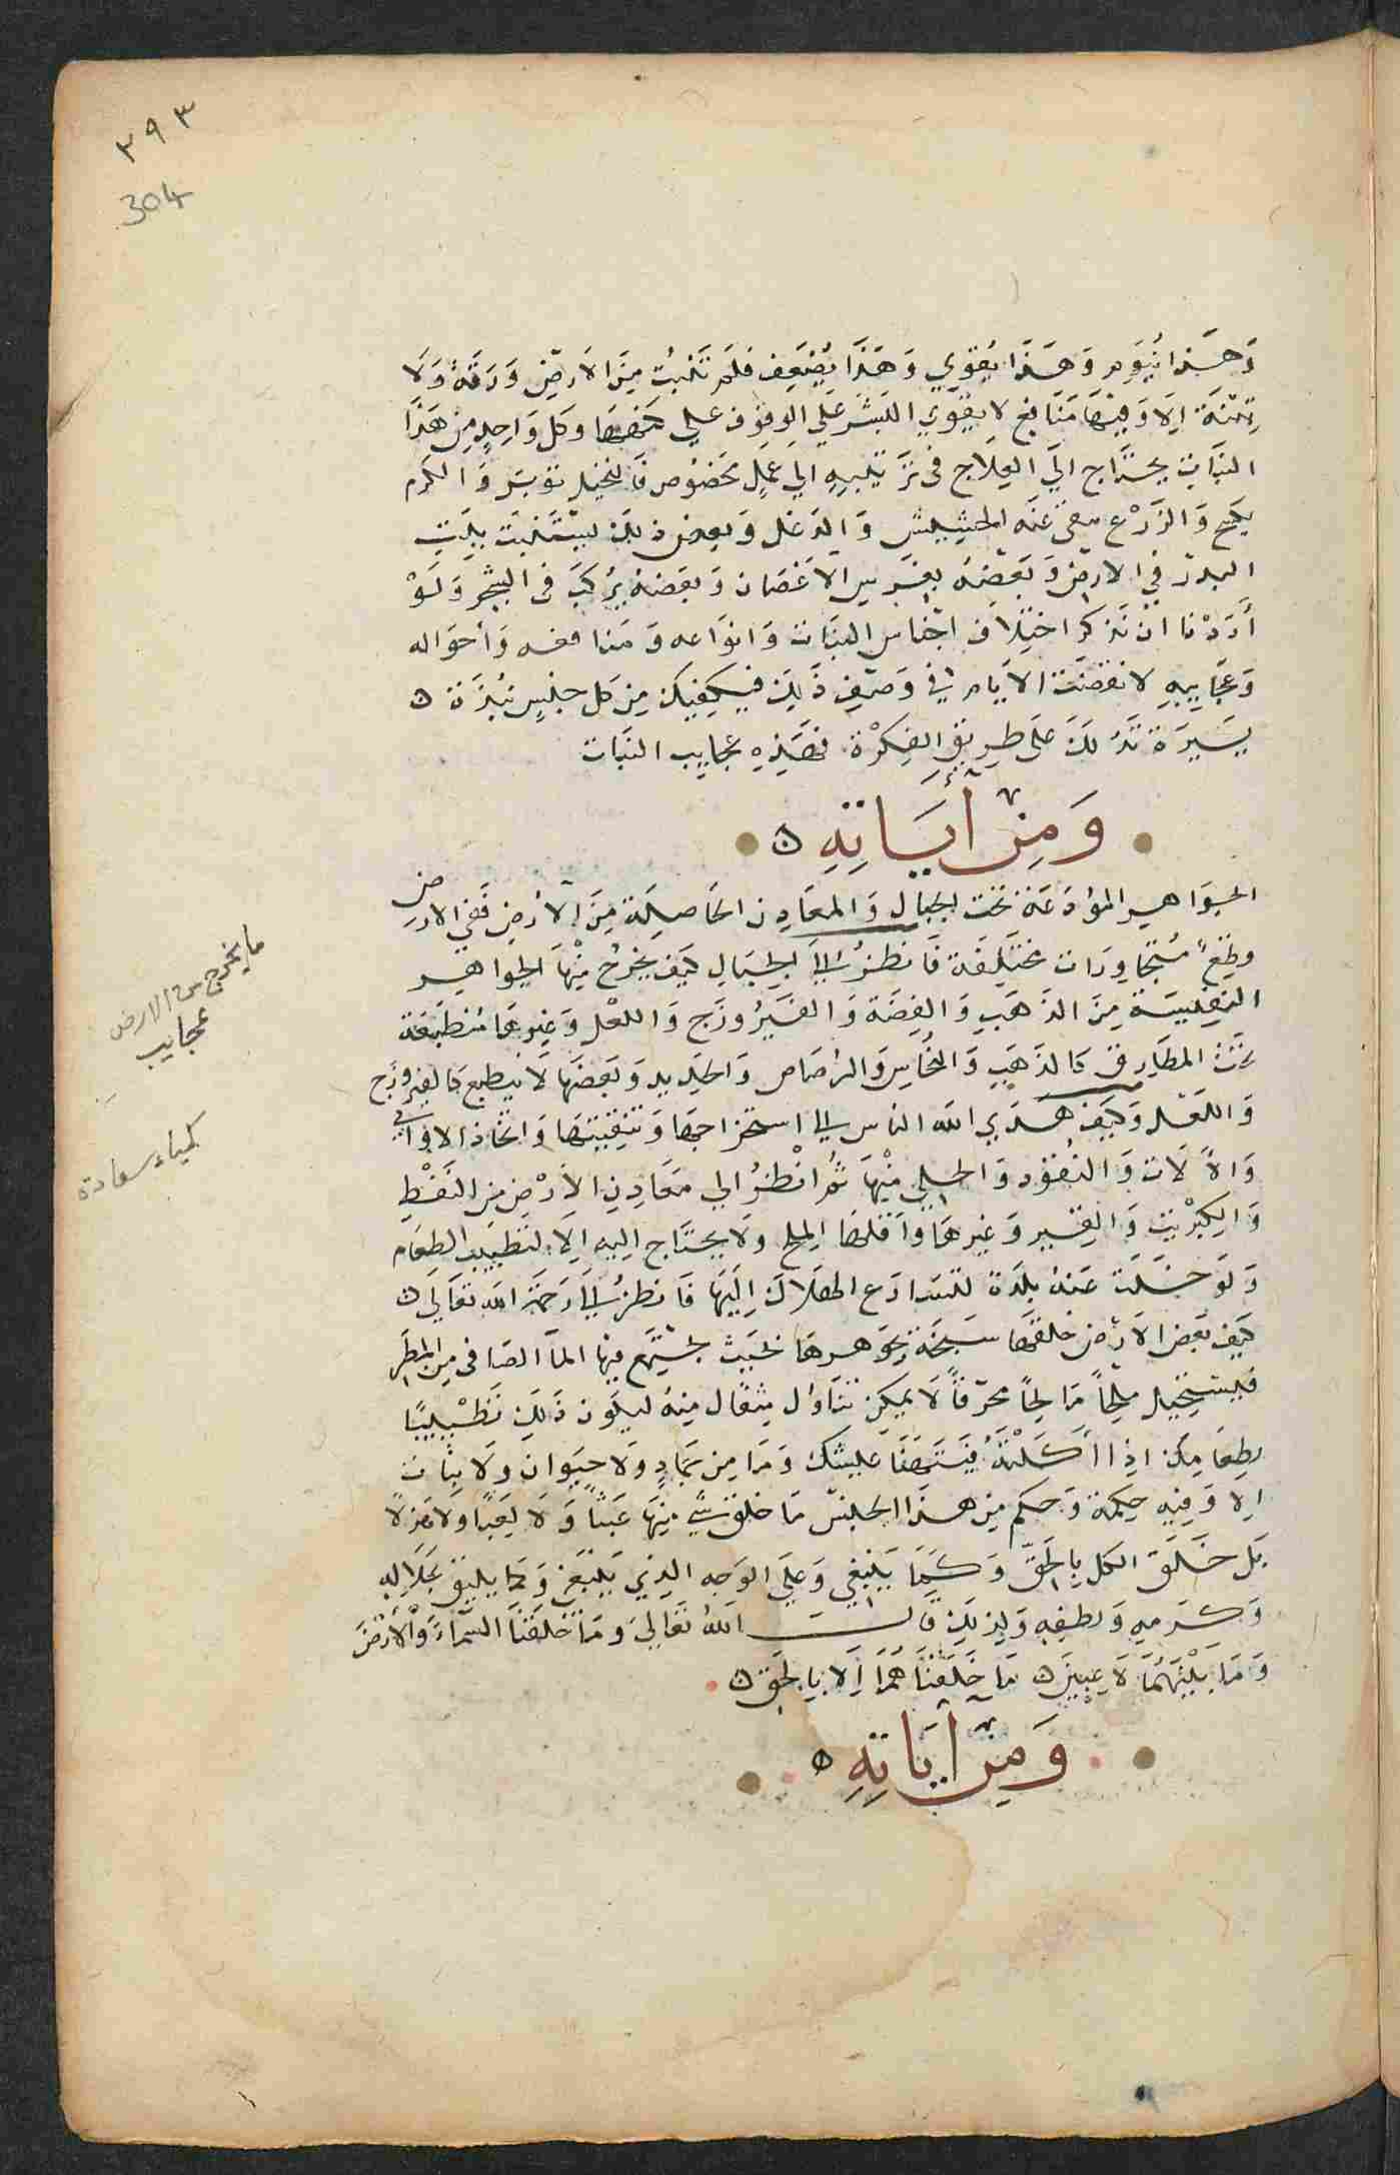 ٣٩٣
304
وَهَذا يُنَوِم وَهَذَا يُقَوي وَهَذَا يُضْعِف فَلَم تَنْبُت مِنَ الاَرضِ وَرَقَةٌ وَلَا
تبنَة اِلَا وَفيهَا مَنَافِع لا يقوَي البَشَر عَلَي الوقوف علي كنهها وكل وَاحِدٍ مِن هَذا
النبَات يحتَاج اليَ العِلاج في تَربيتِهِ الي عَمَلٍ مَخصُوص فَالنخيل تؤبَر وَالكرم
يكسح وَالزَرْع ينقى عَنه الحشِيش وَالدَغَل وَبعض ذلك يستَنبَت ببث
البذر في الارض وَبَعضهُ بغَرس الاَغصَان وَبعضهُ يُركبَ في الشجر وَلَوْ
أرَدْنا ان نَذكر اختِلَاف اَجناس النبَات وَانوَاعه وَمَنافعه وَأحوَاله
وَعَجَايبهِ لانقضَت الاَيام في وَصفِ ذَلِك فيكفِيك مِن كل جِنسٍ نُبذَة ه
يَسِيرَة تَدُ لكَ عَلَى طرِيقِ الفِكرْة فهَذِهِ عَجايب النَبات
وَمِنْ آيَاتِهِ ه
الجوَاهِر المؤدَعَة تحت الجبال وَالمعَادِن الحَاصِلَة مِنَ الأرْضِ فَفي الارض
قِطَعٌ مُتجَاوِرَات مختَلِفَة فَانظرْ اِلَي الجِبَالِ كَيف يخرُج مِنْهَا الجواهِر
النفِيسَة مِنَ الذَهَبِ وَالفِضَة وَالفَيْرُوزَج وَاللعْل وَغيرهَا مُنطَبعَة
تحتْ المطَارِق كالذَهَبِ وَالنُحَاسِ وَالرصَاص وَالحَدِيدِ وَبَعضهَا لَا ينطبع كالفيروزَج
وَاللَعْل وَكَيفَ هَدَي الله الناس اِلي استخراجهَا وَتنقيتهَا وَاتخاذ الاوَاني
وَالآلَات وَالنُقود وَالحلي مِنْهَا ثُم انْظُرْ الي مَعَادِنِ الاَرْضِ مِن النَفْطِ
وَالكِبْرْيت وَالقير وَغيرهَا وَاَقَلهَا الملح ولَا يحتَاج اليه اِلَا لتَطييب الطعَام
وَلَو خلَت عَنهُ بلدَة لتسَارَع الهَلَاك اِلَيهَا فَانظرْ اِلَي رَحمَةِ الله تعَالَي ه
كَيف بَعض الاَرض خلقها سَبخَة بجَوهرهَا بحَيث يجتَمع فيهَا المآ الصَافي مِن المطَر
فَيستحِيل ملحًا مَالحًا محرقًا لَا يمكِن تنَاوُل مِثقال مِنهُ ليكون ذَلِك تَطْيِيبًا
لِطعَامِك اذِا اَكَلْتَهُ فيَتَهَنَا عَيشك وَمَا مِن جَمادٍ وَلَا حيَوان وَلا نبَات
اِلا وَفيهِ حِكمَة وَحِكم مِن هَذَا الجنس مَا خلق شي مِنهَا عَبَثًا وَلَا لَعِبًا ولا هَزلًا
بَل خَلَق الكل بِالحَقّ وَكَمَا يَنبَغِي وَعَلَي الوَجه الذِي يَنبَغِي وَكمَا يليق بجَلَالِهِ
وَكرَمِهِ وَلطفِهِ وَلِذَلِكَ قَال الله تعَالي وَمَا خلَقنَا السَّماءَ وَالأرْضَ
وَمَا بَيْنَهُمَا لَاعِبينَ ه مَا خَلَقنَاهُمَا اِلَا بِالحَق ه
وَمِنْ آيَاتِهِ ه
ما يخرج من الارض
عجايب
كيمياء سعادة